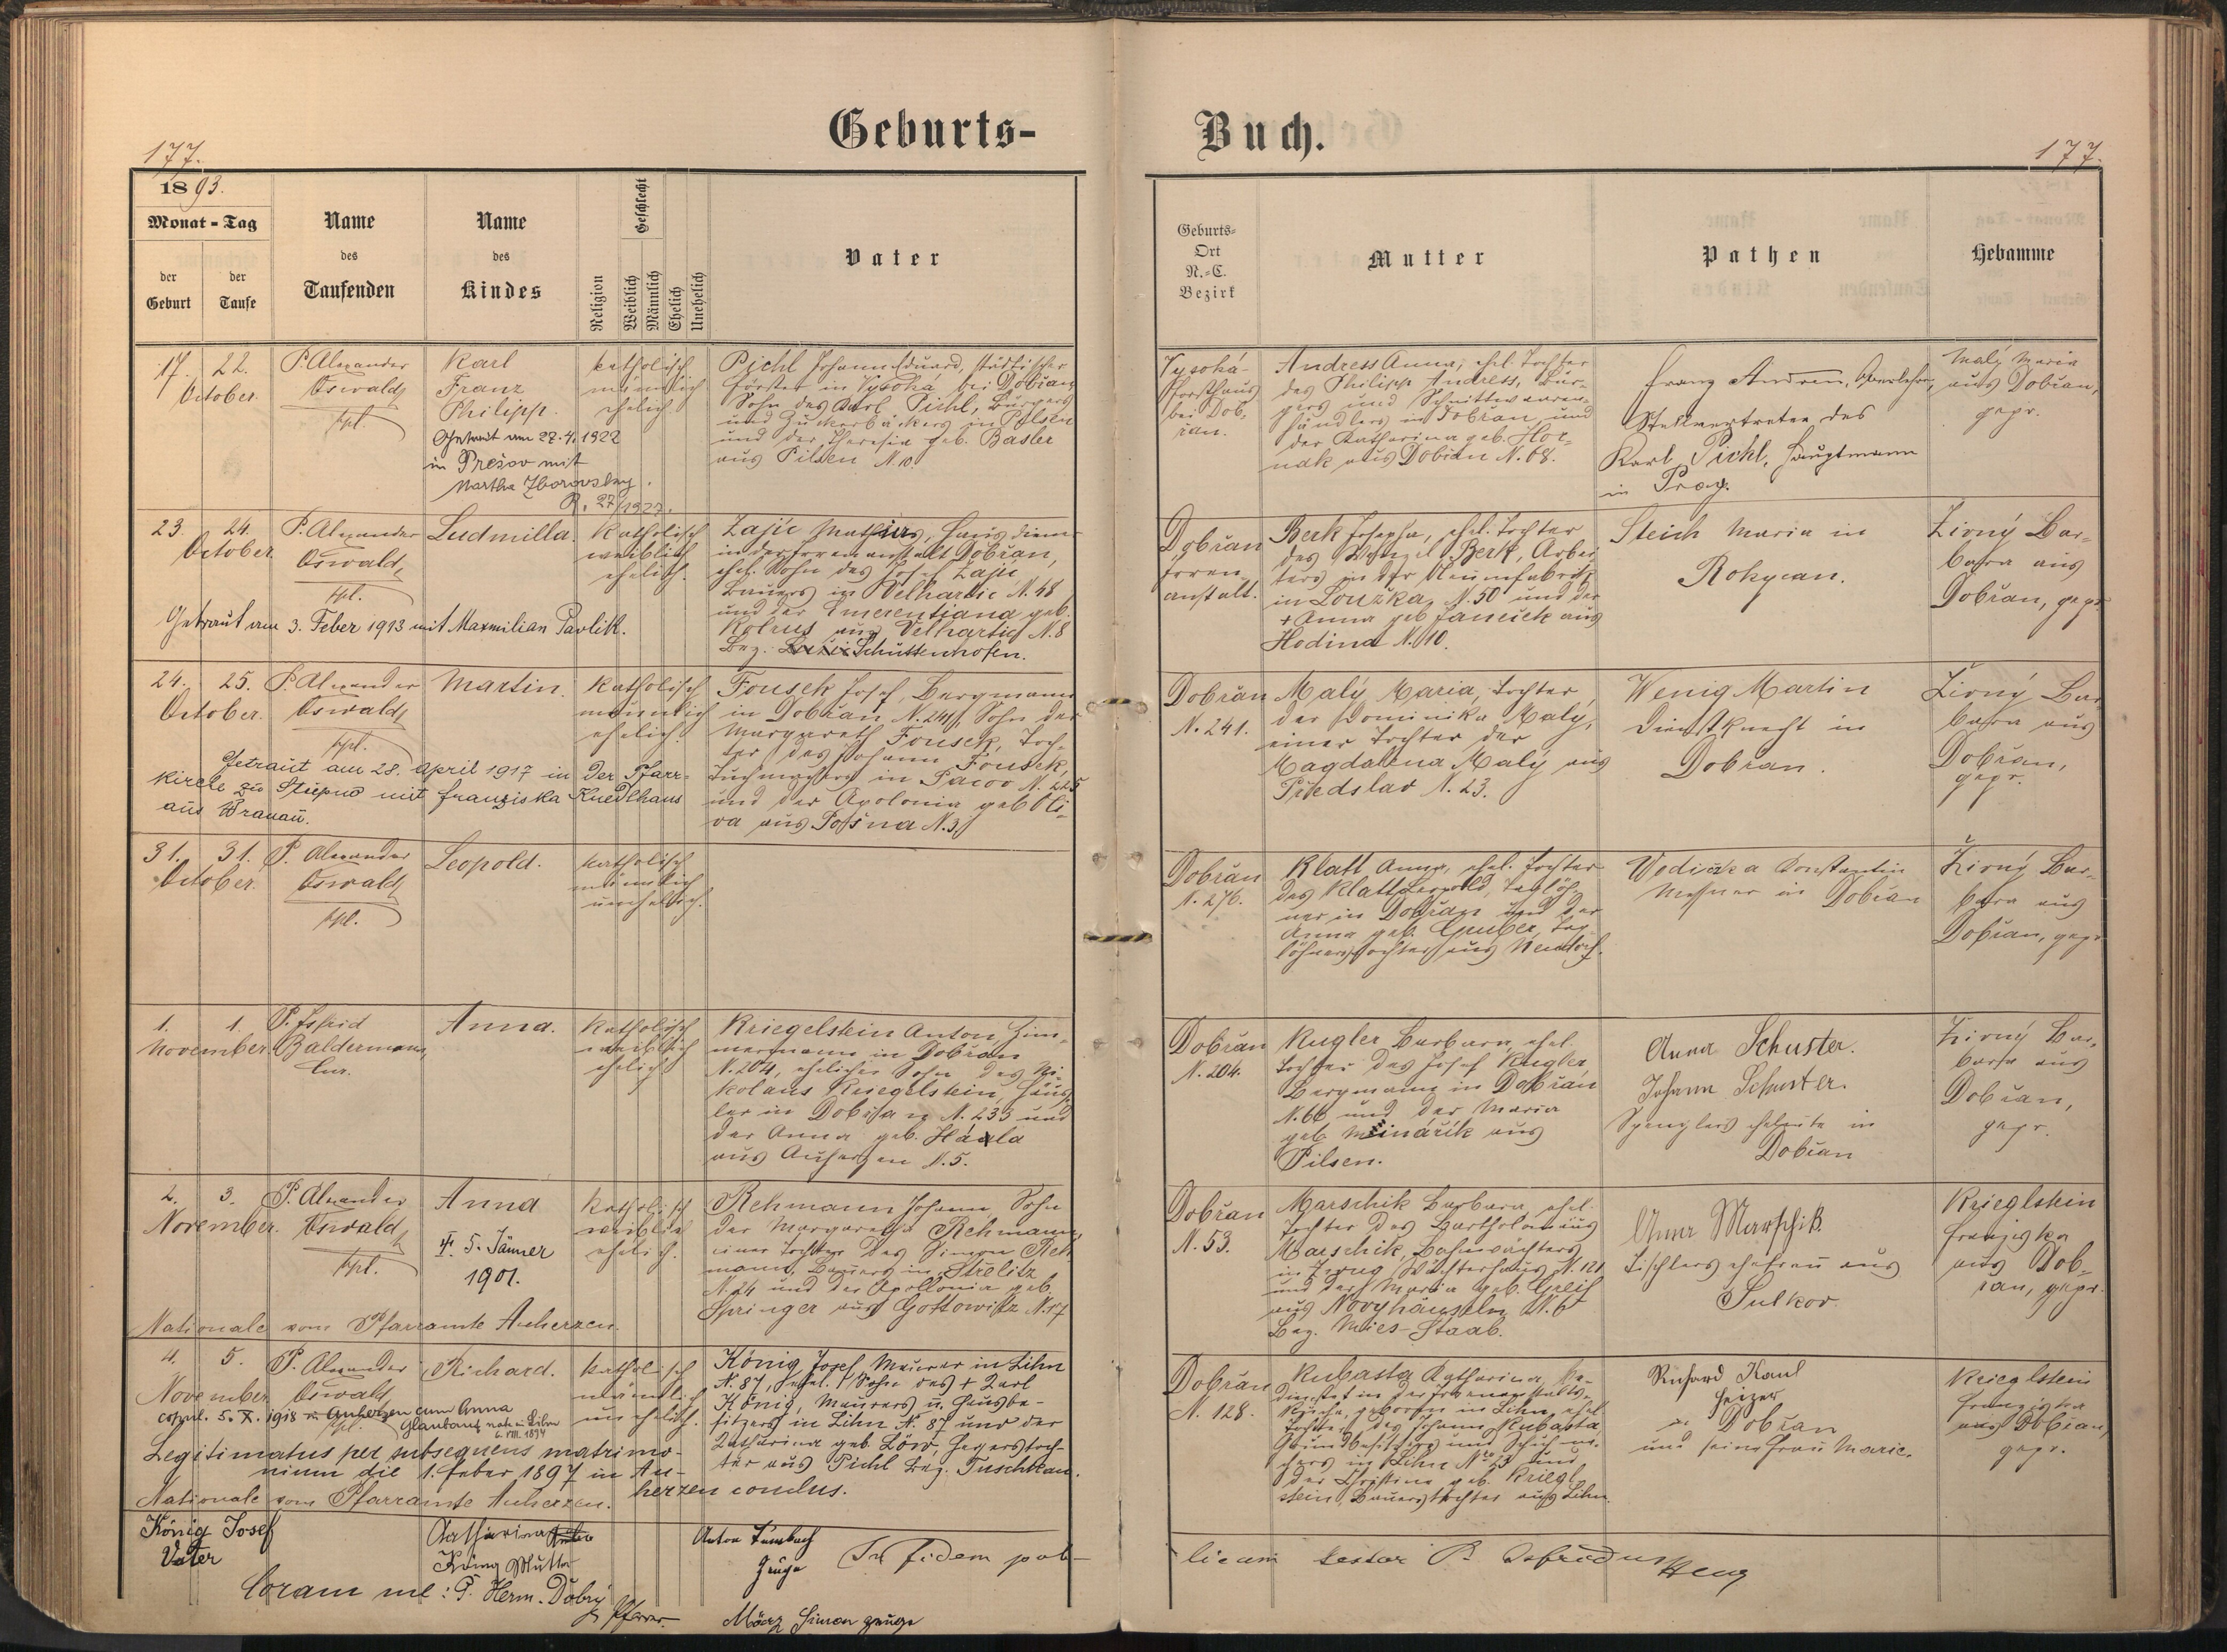 Geburts-
Buch.
177.
177.
1893.
Monat - Tag
der Geburt
der Taufe
Name
des
Taufenden
Name
des
Kindes
Religion
Geschlecht
Weiblich
Männlich
Ehelich
Unehelich
Vater
Geburts-
Ort
N.-C.
Bezirk
Mutter
Pathen
Hebamme
17. 22.
October.
P. Alexander
Oswald
Kpl.
Karl
Franz
Philipp.
Getraut am 27.4.1922
in Prešov mit
Martha Zborovsky.
katholisch
männlich
ehelich
Pichl Johann Eduard, städtischer
Förster in Vysoká bei Dobřan
Sohn des Karl Pichl, Bürgers
und Zuckerbäckers in Pilsen
und der Theresia geb. Basler
aus Pilsen N. 10.
Vysoká-
Forsthaus
bei Dob-
řan.
Andress Anna, ehel. Tochter
des Philipp Andress, Bür-
gers und Schnittwaren-
händlers in Dobřan und
der Katharina geb. Hor-
nak aus Dobřan N. 68.
Stellvertreter des
Karl Pichl, Hauptmann
in Prag.
Malý Maria
aus Dobřan,
gepr.
23. 24.
October.
P. Alexander
Oswald
Kpl.
Ludmilla.
katholisch
weiblich
ehelich.
Zajíc Mathias, Hausdiener
in der Irrenanstalt Dobřan,
ehel. Sohn des Josef Zajíc
Bauers in Velhartic N. 48
und der Emerentiana geb.
Kolrus aus Velhartic N. 8
Bez. Schüttenhofen.
Getraut am 3. Feber 1913 mit Maxmilian Pavlik.
Dobřan
Irren-
anstalt.
Berk Josepha, ehel. Tochter
des Wenzel Berk, Arbei-
ters in der
in Louzka N. 50 und der
+ Anna geb. Janeček aus
Hodina N. 10.
Steich Maria in
Rokycan.
Žirný Bar-
bara aus
Dobřan, gepr.
24. 25.
October.
P. Alexander
Oswald
Kpl.
Martin.
katholisch
männlich
ehelich.
Fousek Josef, Bergmann
in Dobřan N. 241, Sohn der
Margareth Fousek, Toch-
ter des Johann Fousek,
Tuchmachers in Pacov N. 225
und der Apolonia geb. Oli-
va aus Pošna N. 3.
Getraut am 28. April 1917 in der Pfarr-
kirche zu Štěpno mit Franziska Knedlhans
aus Branau.
Dobřan
N. 241.
Malý Maria, Tochter
der Dominika Malý,
einer Tochter der
Magdalena Malý aus
Předslav N. 23.
Wenig Martin
Dienstknecht in
Dobřan.
Žirný Bar-
bara aus
Dobřan,
gepr.
31. 31.
October.
P. Alexander
Oswald
Kpl.
Leopold.
katholisch
männlich
unehelich.
Dobřan
N. 276.
Klatt Anna, ehel. Tochter
des Klatt Leopold, Taglöh-
ner in Dobřan und der
Anna geb. Gruber, Tag-
löhnerstochter aus Neudorf.
Wodiczka Constantin
Messner in Dobřan
Žirný Bar-
bara aus
Dobřan, gepr.
1. 1.
November.
P. Isfrid
Baldermann,
Cur.
Anna.
katholisch
weiblich
ehelich
Kriegelstein Anton Zim-
mermann in Dobřan
N. 204, ehelicher Sohn des Ni-
kolaus Kriegelstein, Häus-
ler in Dobřan N. 233 und
der Anna geb.
aus Auherzen N. 5.
Dobřan
N. 204.
Kugler Barbara, ehel.
Tochter des Josef Kugler
Bergmann in Dobřan
N. 66 und der Maria
geb. Minařík aus
Pilsen.
Anna Schuster.
Johann Schuster.
Spenglerseheleute in
Dobřan
Žirný Bar-
bara aus
Dobřan,
gepr.
2. 3.
November.
P. Alexander
Oswald
Kpl.
Anna
5. Jänner
1901.
katholisch
weiblich
ehelich.
Rehmann Johann, Sohn
der Margaretha Rehmann,
einer Tochter des Simon Reh-
mann, Bauers in Střelitz
N. 24 und der Apollonia geb.
Springer aus Gottowitz N. 17
Nationale vom Pfarramte Auherzen.
Dobřan
N. 53.
Marschik Barbara, ehel.
Tochter des Bartholomäus
Marschik, Bahnwächters
in Zwug Wächterhaus N. 121
und der Maria geb. Greif
aus Novyhäuseln N. 6
Bez. Mies-Staab.
Anna Marschik
Tischlersehefrau aus
Sulkov.
Krieglstein
Franziska
aus Dob-
řan, gepr.
4. 5.
November
P. Alexander
Oswald
Kpl.
Richard.
katholisch
männlich
unehelich.
König Josef, Maurer in Lihn
N. 87, ehel. Sohn des + Karl
König, Maurers u. Hausbe-
sitzers in Lihn N. 87 und der
Katharina geb. Löw, Hegerstoch-
ter aus Pichl Bez. Tuschkau.
copul. 5. X. 1918 in Auherzen cum Anna
Glaubauf nata in Lihn
6. VIII. 1894
Legitimatus per subsequens matrimo-
nium die 1. Feber 1897 in Au-
herzen conclus.
Nationale vom Pfarramte Auherzen.
Dobřan
N. 128.
Kubasta Katharina, Be-
dienstet in der Irrenanstalts-
küche, geboren in Lihn, ehel.
Tochter des Johann Kubasta,
Grundbesitzers und Schuhma-
chers in Lihn N. 23 und
der Christina geb. Kriegl-
stein, Bauerstochter aus Lihn.
Richard Kaul
Heizer
in Dobřan
und seine Frau Marie.
Krieglstein
Franziska
aus Dobřan,
gepr.
König Josef
Vater
Katharina
König Mutter
Zeuge
In fidem pub-
licam testor P.
Coram me: P. Herm. Dobrý
Pfarrer.
März Simon Zeuge